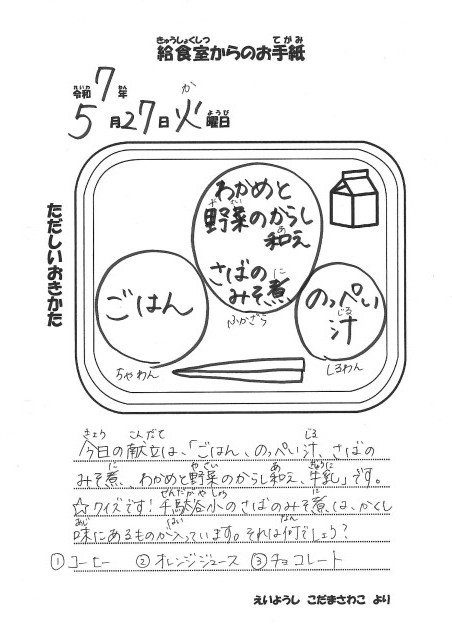 きゅうしょくしつ てがみ
給食室からのお手紙
れいわ ねん
令和7年
か ようび
5月27日火曜日
ただしいおきかた
わかめと
やさい
野菜のからし
あ
和え
さばの
に
みそ煮
ふかざら
ごはん
ちゃわん
のっぺい
じる
汁
しるわん
きょう こんだて じる
今日の献立は、「ごはん、のっぺい汁、さばの
に やさい あ ぎゅうにゅう
みそ煮、わかめと野菜のからし和え、牛乳」です。
せんだがやしょう に
☆クイズです!千駄谷小のさばのみそ煮は、かくし
あじ はい なん
味にあるものが入っています。それは何でしょう?
①コーヒー ②オレンジジュース ③チョコレート
えいようし こだまさわこ より